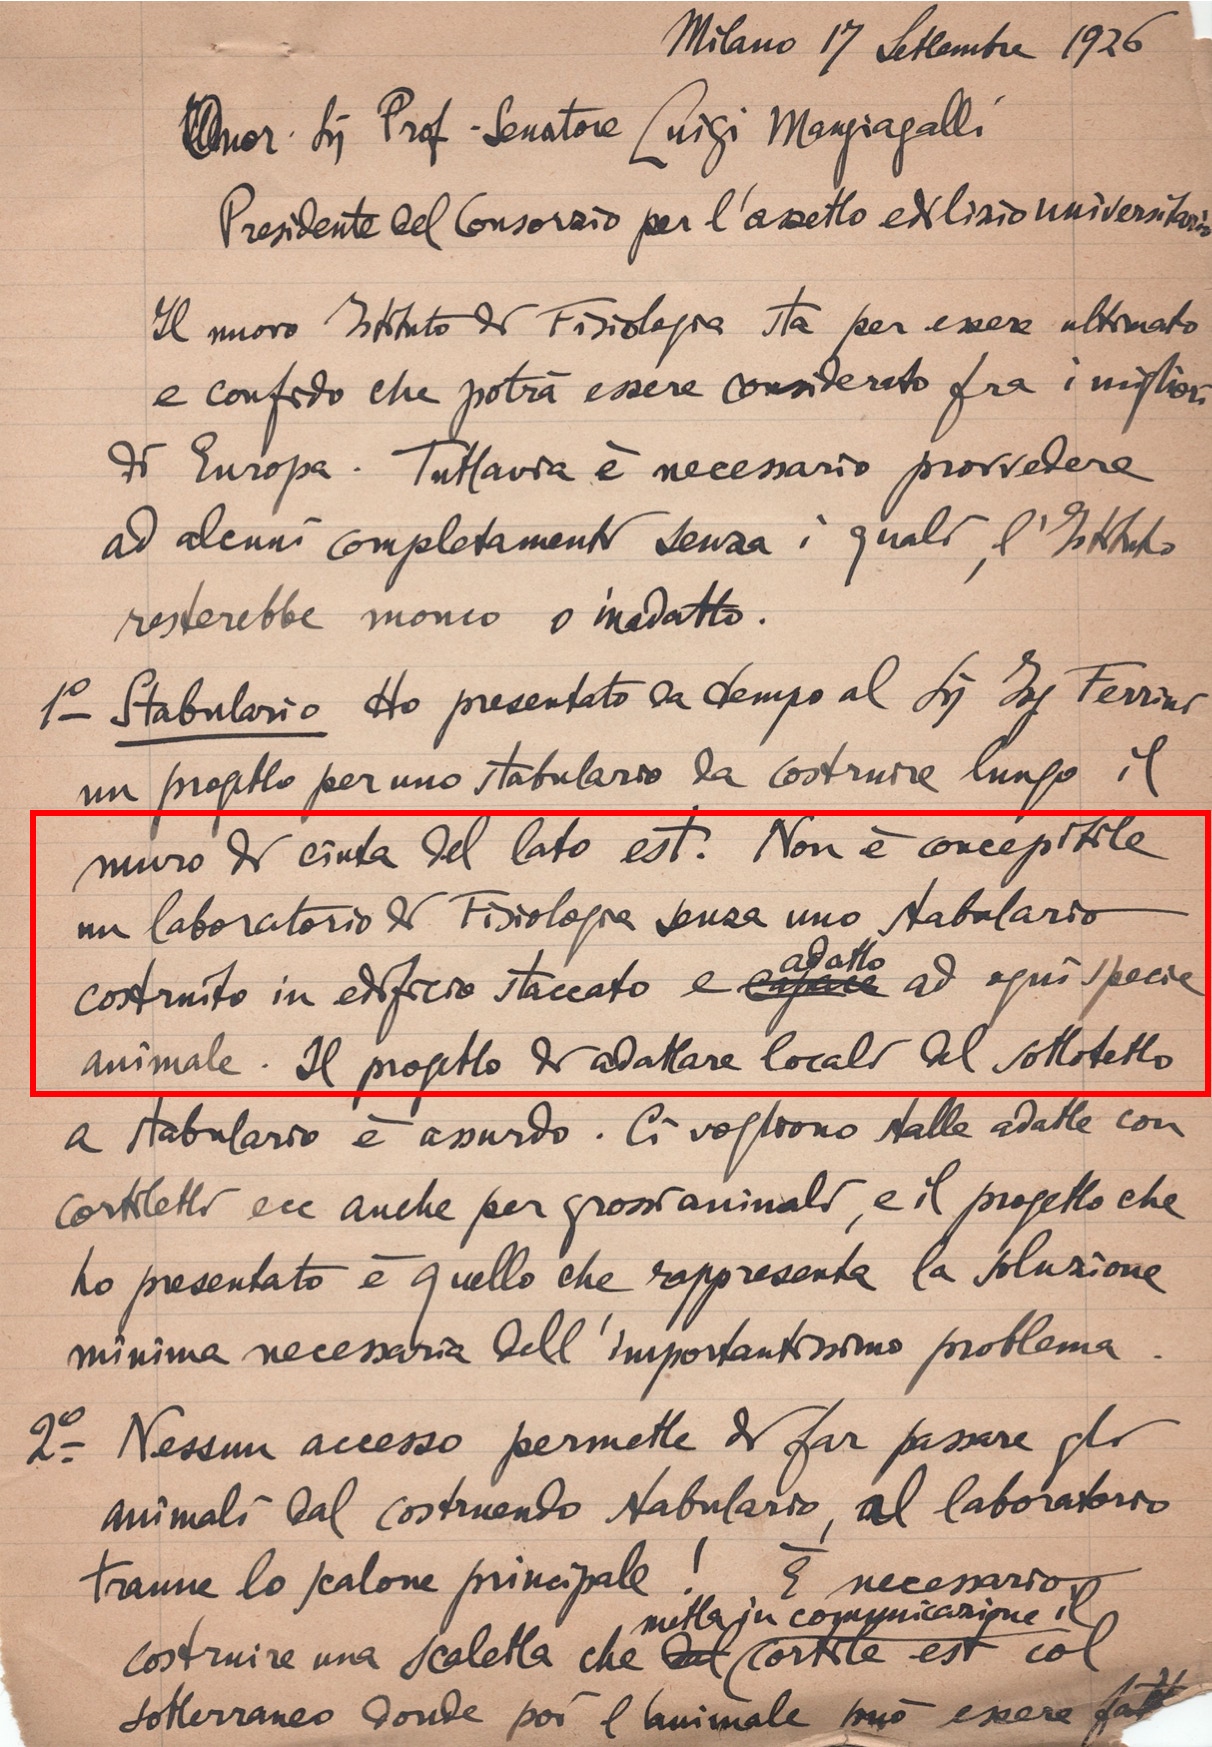 Milano 17 Settembre 1926
Onor. Sig Prof - Senatore Luigi Mangiagalli
Presidente del Consorzio per l'assetto edilizio universitario
Il nuovo Istituto di Fisiologia sta per essere ultimato
e confido che potrà essere considerato fra i migliori
di Europa. Tuttavia è necessario provvedere
ad alcuni completamenti senza i quali, l'Istituto
resterebbe monco o inadatto.
1º Stabulario Ho presentato da tempo al Sig Ing Ferrini
un progetto per uno stabulario da costruire lungo il
muro di cinta del lato est. Non è concepibile
un laboratorio di Fisiologia senza uno stabulario
adatto
costruito in edificio staccato e capace ad ogni specie
animale. Il progetto di adattare locali del sottotetto
a stabulario è assurdo. Ci vogliono stalle adatte con
cortiletti ecc anche per grossi animali, e il progetto che
ho presentato è quello che rappresenta la soluzione
minima necessaria dell'importantissimo problema.
2º Nessun accesso permette di far passare gli
animali dal costruendo stabulario, al laboratorio
tranne lo scalone principale! È necessario
metta in comunicazione il
costruire una scaletta che dal cortile est col
sotterraneo donde poi l'animale può essere fatt